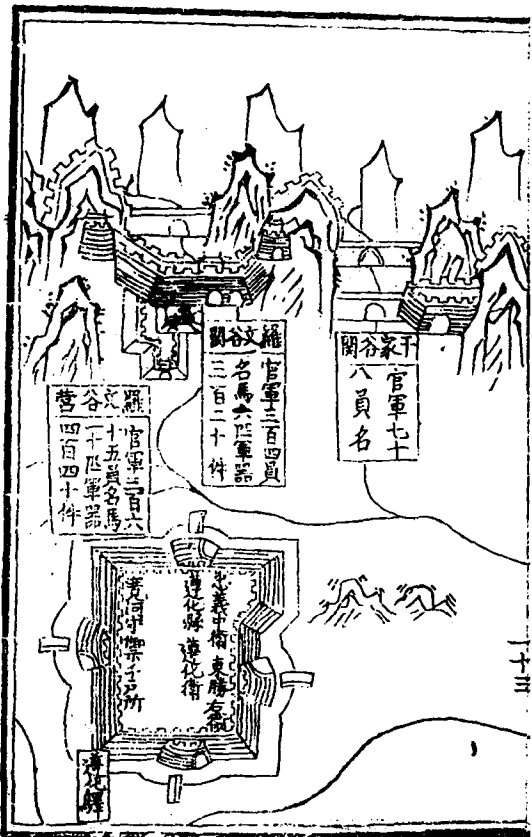 于家谷關
官軍七十
八員名
羅文谷關
官軍三百四員
名馬六匹軍器
三百二十件
羅文谷營
官軍三百六
十五員名馬
一十匹軍器
四百四十件
忠義中衛 東勝右衛
遵化縣 遵化衛
寬河守禦千戶所
遵化驛